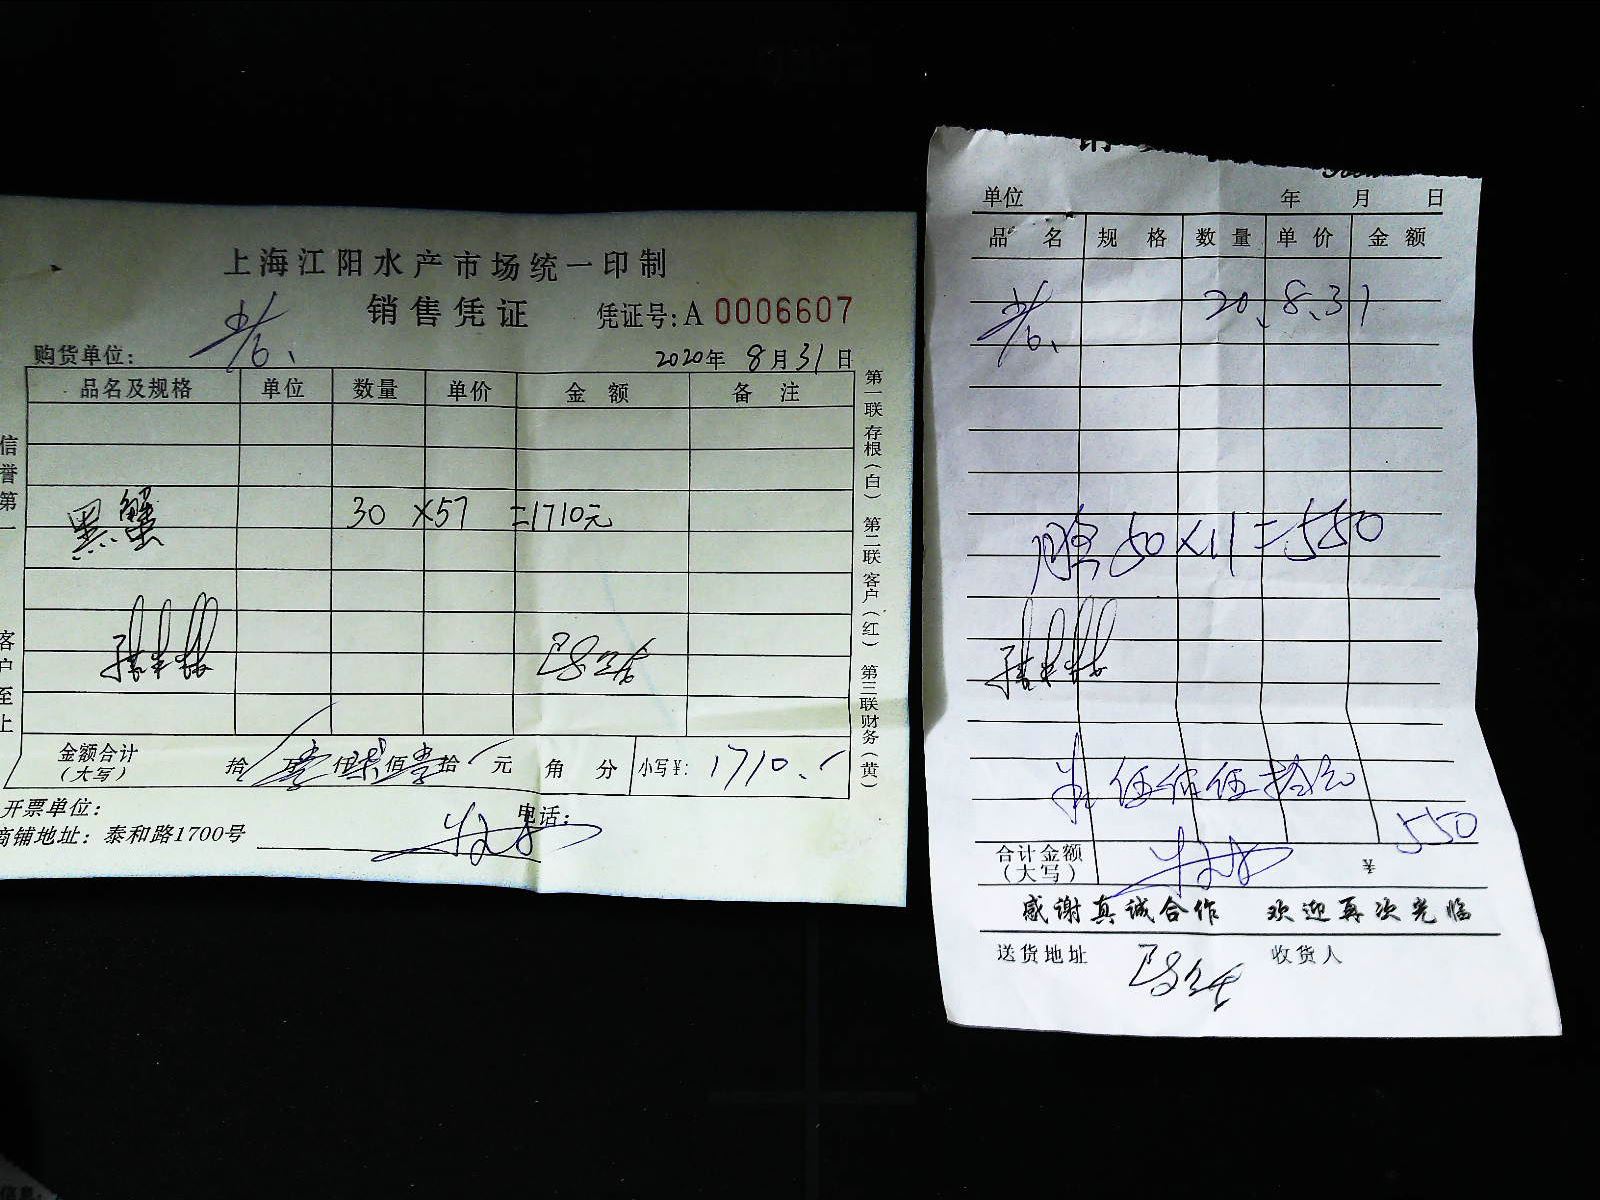 上海江阳水产市场统一印制
销售凭证 凭证号:A 0006607
购货单位: 2020年 8月31日
品名及规格 单位 数量 单价 金额 备注
黑蟹 30 ×57 =1710元
金额合计（大写） 拾 万 壹 仟 柒 佰 壹 拾 元 角 分 小写¥: 1710.
开票单位: 电话:
商铺地址: 泰和路1700号
信誉第一 客户至上
第一联存根（白） 第二联客户（红） 第三联财务（黄）
单位 年 月 日
品名 规格 数量 单价 金额
20、8、31
50×11=550
伍佰伍拾元
550
合计金额（大写） ¥
感谢真诚合作 欢迎再次光临
送货地址 收货人